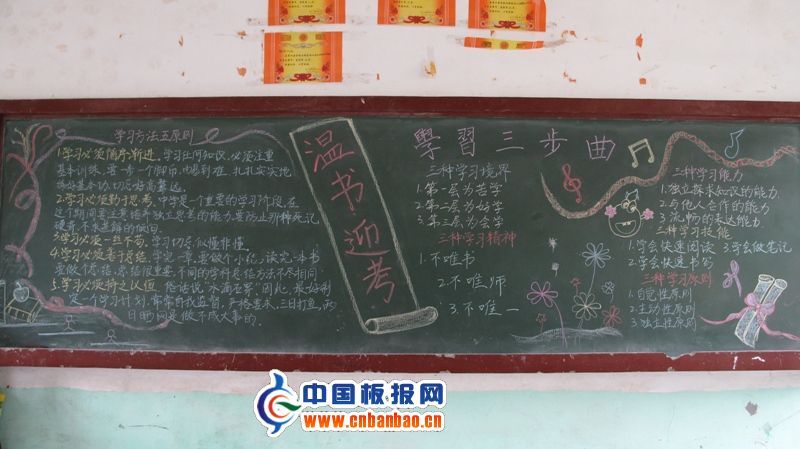 学习方法五原则
1.学习必须循序渐进。学习任何知识，必须注重
基本训练，要一步一个脚印，由易到难，扎扎实实地
练好基本功，切忌好高骛远。
2.学习必须勤于思考。中学是一个重要的学习阶段。在
这个期间要注意培养独立思考的能力。要防止那种死记
硬背，不求甚解的倾向。
3.学习必须一丝不苟。学习切忌似懂非懂。
4.学习必须善于总结。学完一章，要做个小结，读完一本书
要做个总结。总结很重要，不同的学科总结方法不尽相同
5.学习必须持之以恒。俗话说“水滴石穿”。因此，最好制
定一个学习计划，常常自我监督，严格要求，三日打鱼，两
日晒网是做不成大事的。
温书迎考
學習三步曲
三种学习境界
1.第一层为苦学
2.第二层为好学
3.第三层为会学
三种学习精神
1.不唯书
2.不唯师
3.不唯一
三种学习能力
1.独立探求知识的能力
2.与他人合作的能力
3.流畅的表达能力
三种学习技能
1.学会快速阅读 3学会做笔记
2.学会快速书写
三种学习原则
1.自觉性原则
2.主动性原则
3.独立性原则
中国板报网
www.cnbanbao.cn